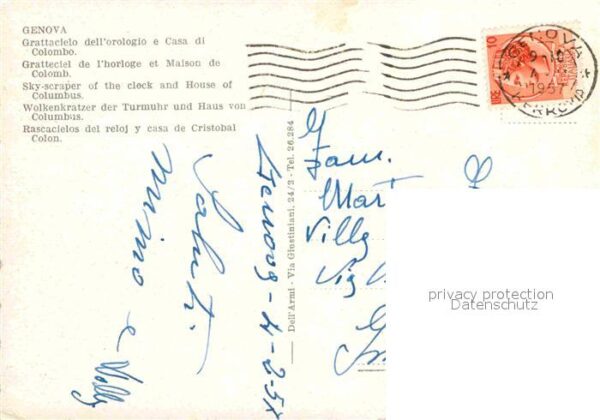 GENOVA
Grattacielo dell'orologio e Casa di
Colombo.
Gratteciel de l'horloge et Maison de
Colomb.
Sky-scraper of the cleck and House of
Columbus.
Wolkenkratzer der Turmuhr und Haus von
Columbus.
Rascacielos del reloj y casa de Cristobal
Colon.
GENOVA
1957
FERROVIA
Genova - 4-2-57
Saluti.
Mimo e Willy
Dell'Armi - Via Giustiniani, 24/2 - Tel. 26.284
Fam.
Mart
Willy
Via
privacy protection
Datenschutz